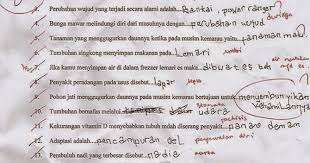 4. Perubahan wujud yang terjadi secara alami adalah... Bantai, power ranger
5. Bunga mawar melindungi diri dari musuhnya dengan... perubahan wujud
durinya
6. Tanaman yang menggugurkan daunnya ketika pada musim kemarau yaitu... tanaman mati.
jati
7. Tumbuhan singkong menyimpan makanan pada... Lemari
8. Jika kamu menyimpan air di dalam freezer lemari es maka... dibuat es batu
9. Penyakit peradangan pada usus disebut... lapar
10. Pohon jati menggugurkan daunnya pada musim kemarau bertujuan untuk... menyempunyikan
stomata
10. Tumbuhan bernafas melalui... udara
11. Kekurangan vitamin D menyebabkan tubuh menjadi diserang penyakit... panas demam
12. Adaptasi adalah... pencampuran dll
penyesuaian diri
13. Pembuluh nadi yang terbesar disebut... nadia
aorta